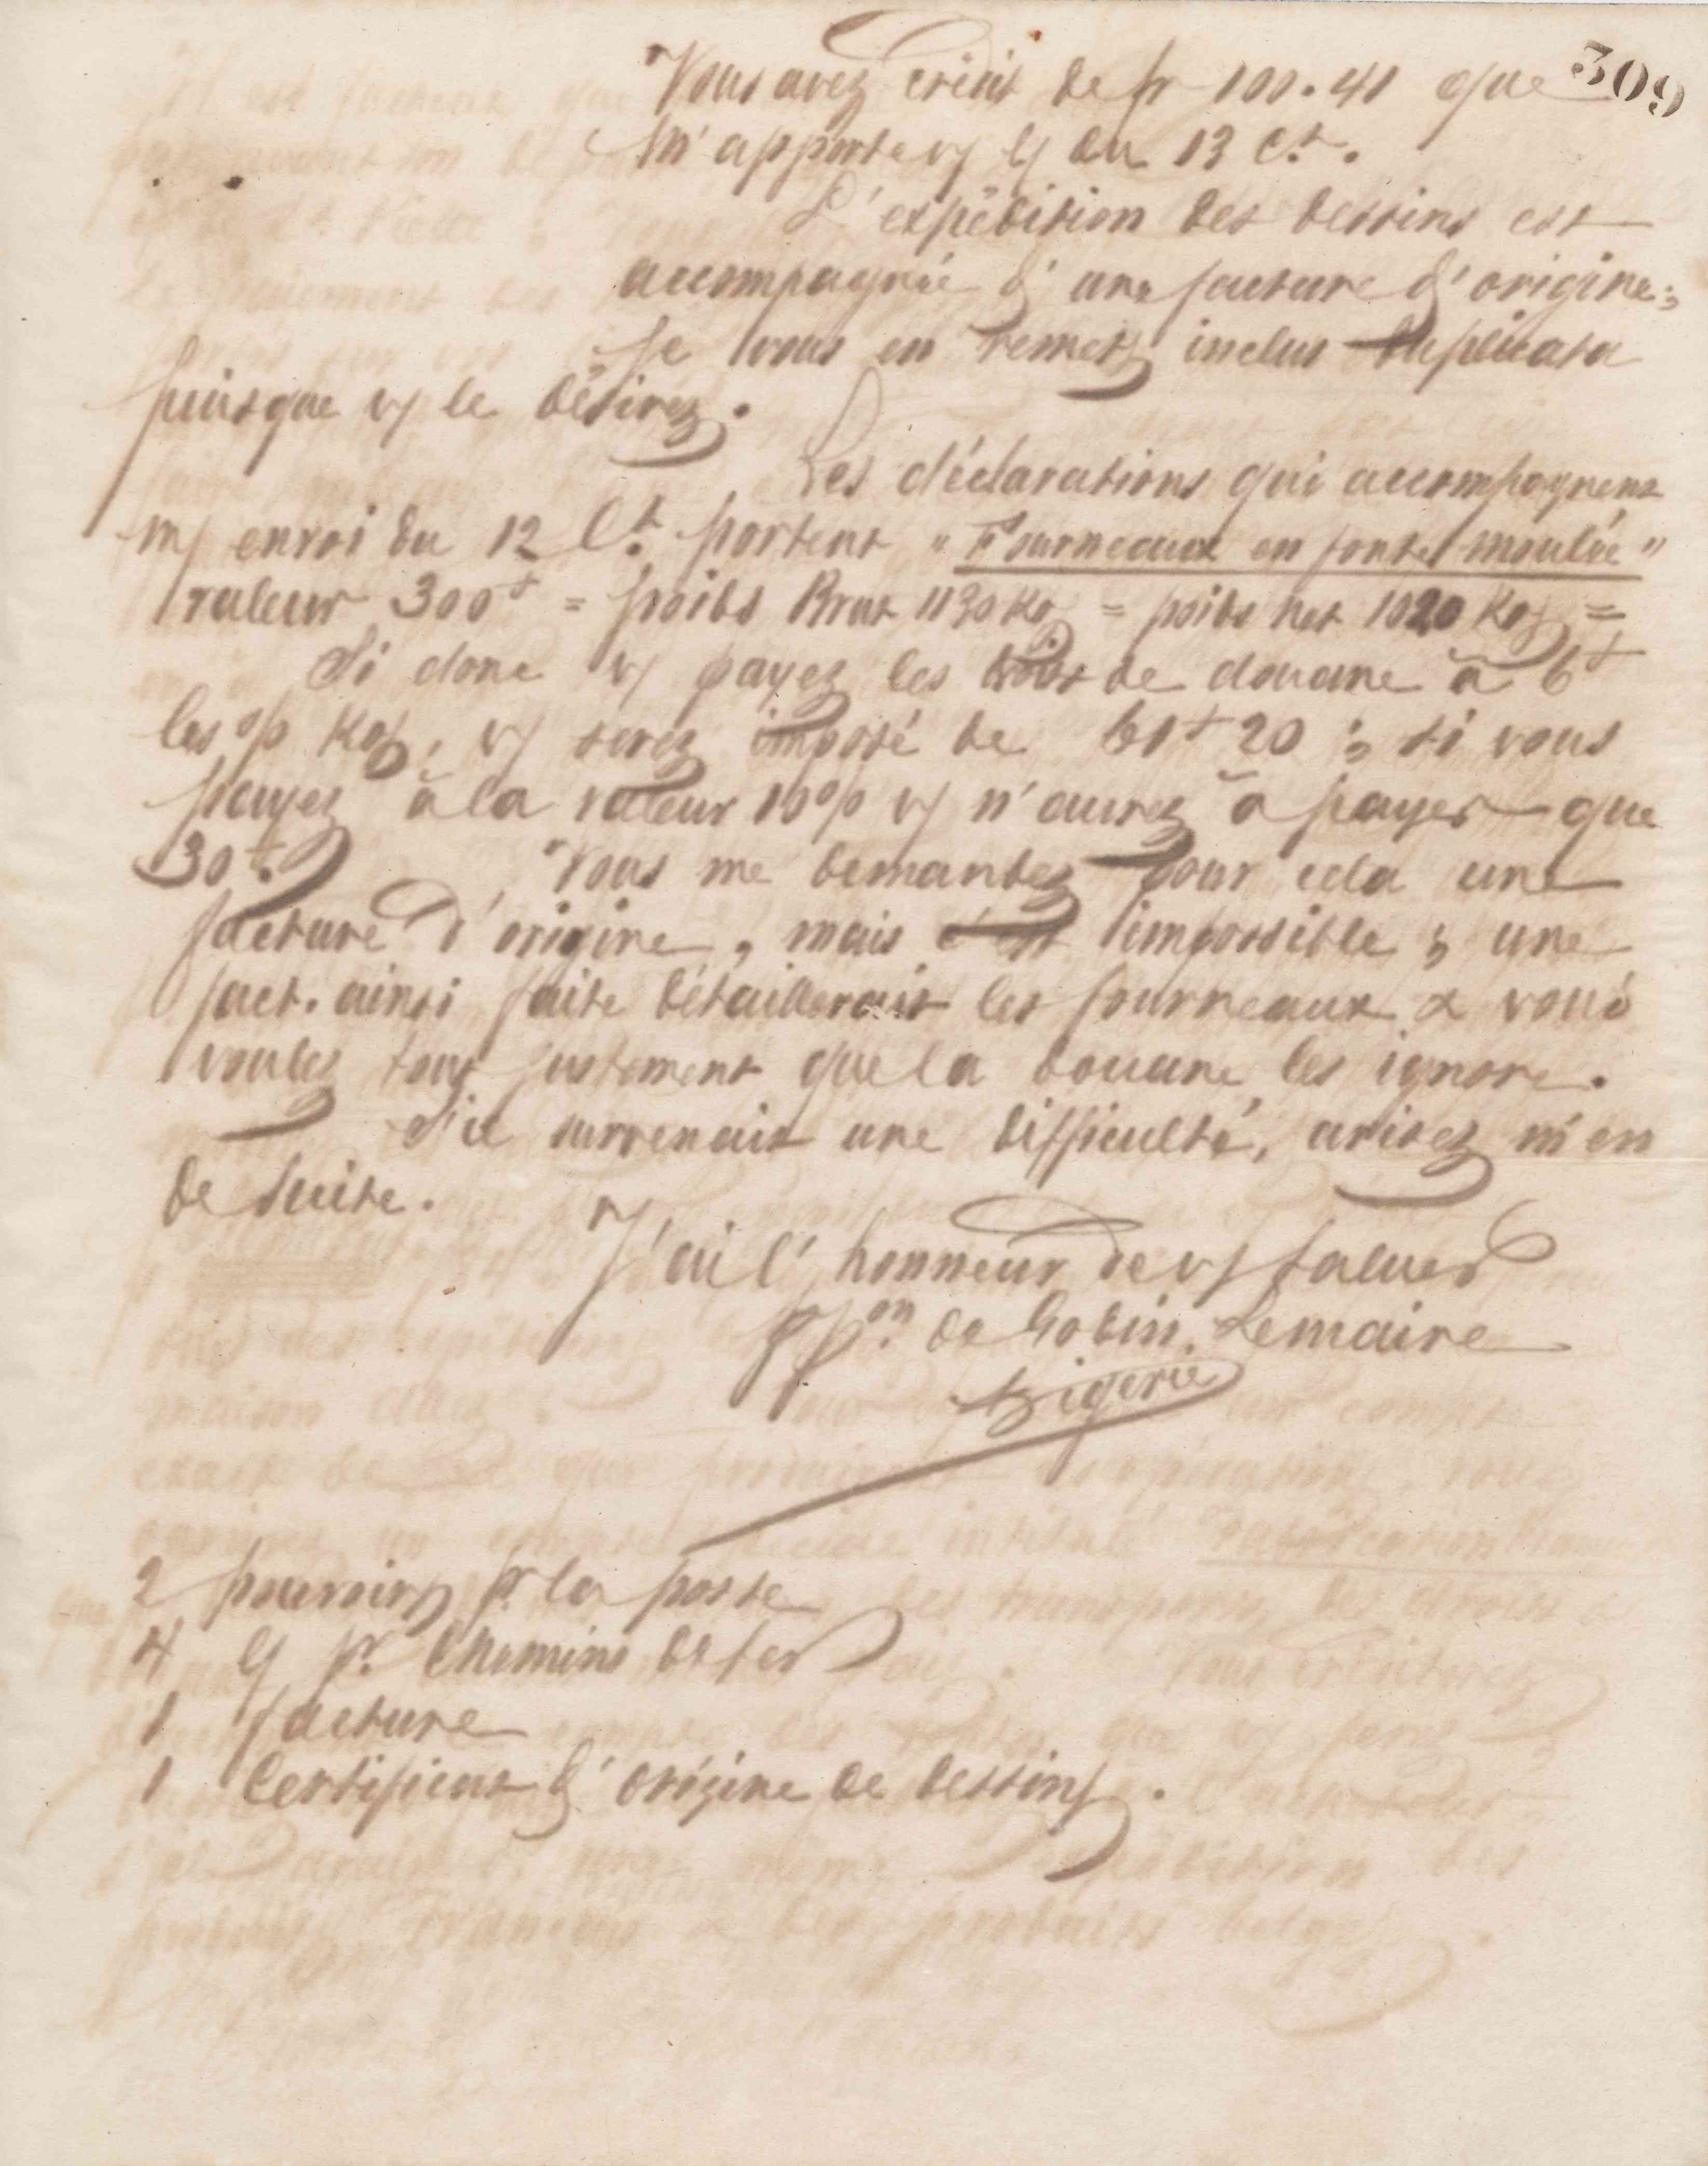 309
Vous avez crédit de fr 100.41 que
m'apporte v/ l/ du 13 Ct.
L'expédition des dessins est
accompagnée d'une facture d'origine;
Je vous en remets inclus duplicata
puisque v/ le désirez.
Les déclarations qui accompagnent
m/ envoi du 12 Ct. portent "Fourneaux en fonte moulée"
valeur 300f = poids Brut 1130 Kos = poids net 1020 Kos =
Si donc v/ payez les droits de douane à 6f
les % Kos, v/ serez imposé de 61f 20; si vous
payez à la valeur 10% v/ n'aurez à payer que
30f. Vous me demandez pour cela une
facture d'origine, mais c'est impossible; une
fact. ainsi faite détaillerait les fourneaux & vous
voulez tout justement que la douane les ignore.
S'il survenait une difficulté, avisez m'en
de suite.
J'ai l'honneur de v/ saluer
pp.on de Godin. Lemaire
2 pouvoirs pr la poste
4 d/ pr. Chemins de fer
1 facture
1 Certificat d'origine de dessins.